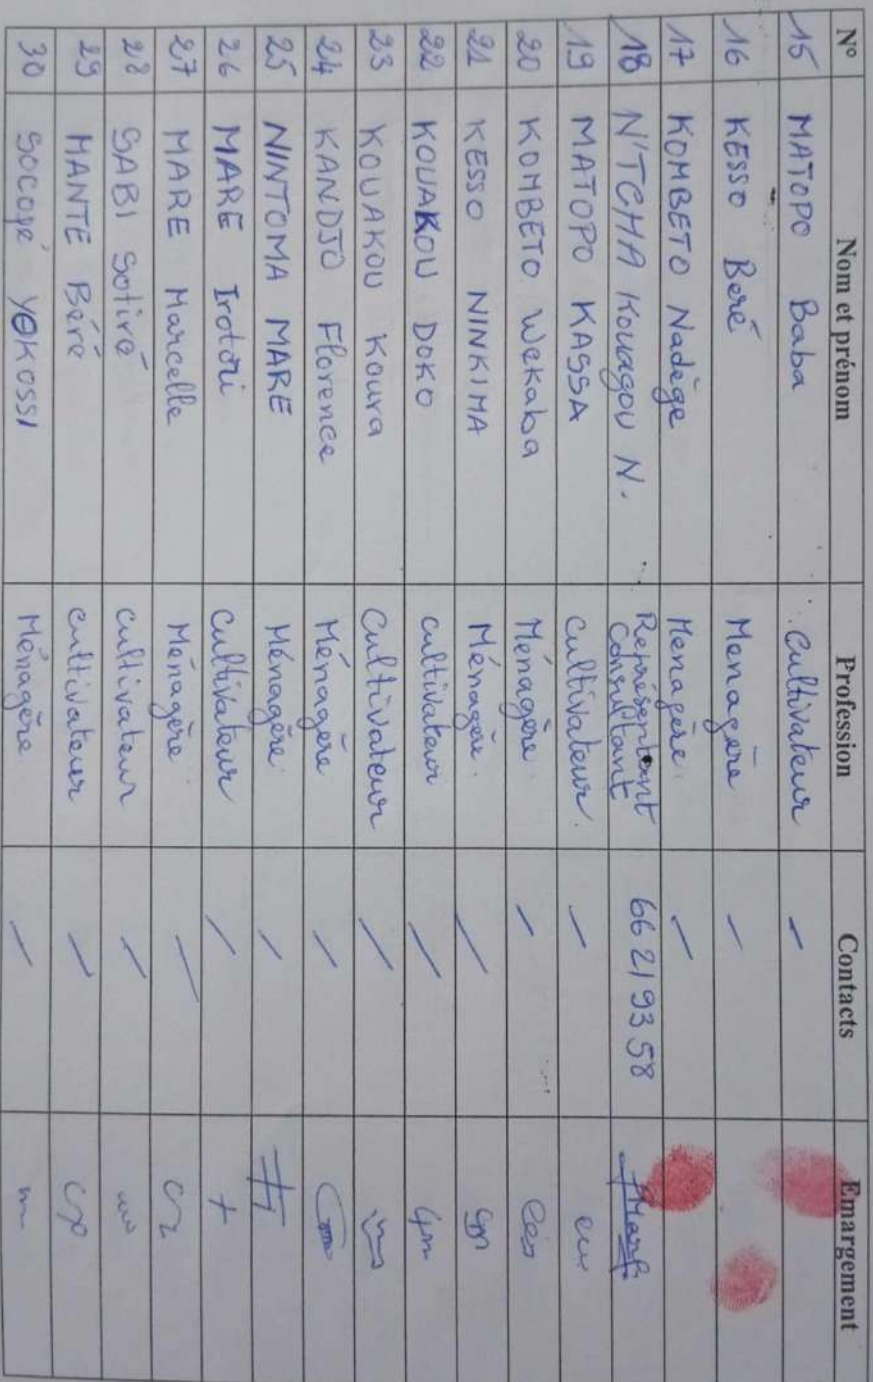 N° Nom et prénom Profession Contacts Emargement
15 MATOPO Baba Cultivateur /
16 KESSO Beré Menagère /
17 KOMBETO Nadège Menagère /
18 N'TCHA Kouagou N. Représentant Consultant 66 21 93 58
19 MATOPO KASSA cultivateur. /
20 KOMBETO Wekaba Ménagère /
21 KESSO NINKIMA Ménagère. /
22 KOUAKOU DOKO cultivateur /
23 KOUAKOU Koura Cultivateur /
24 KANDJO Florence Ménagère /
25 NINTOMA MARE Ménagère /
26 MARE Irotori Cultivateur / +
27 MARE Marcelle Ménagère /
28 SABI Sotiré cultivateur /
29 MANTE Béré cultivateur /
30 Socopé YOKOSSI Ménagère /